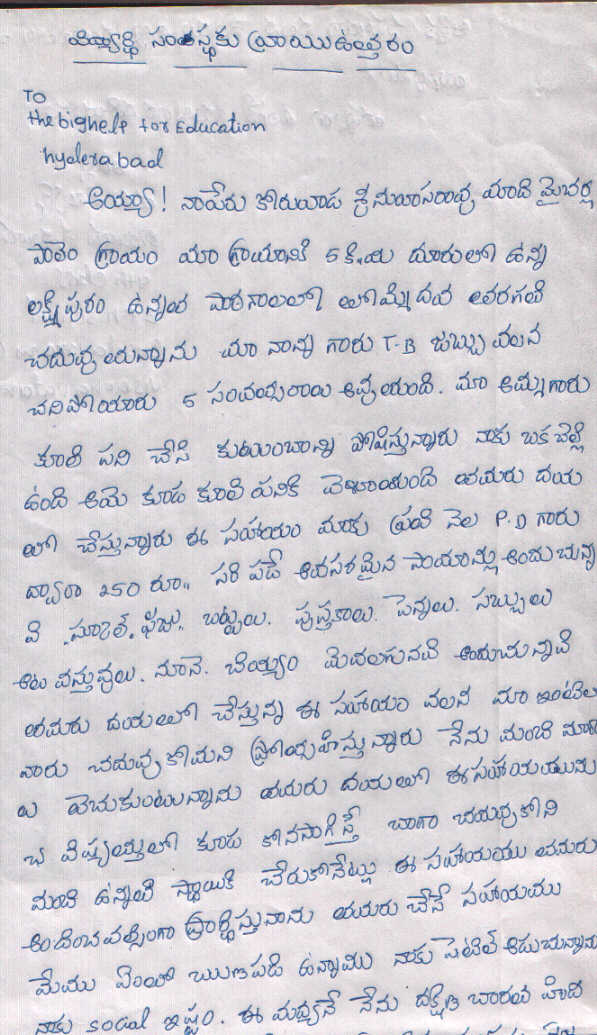 విద్యార్థి సంస్థకు వ్రాయు ఉత్తరం
TO
the bighelp for Education
hyderabad
అయ్యా! నాపేరు శ్రీనువాసరావు మాది మైబర్ల
పాలెం గ్రామం మా గ్రామానికి 5 కి.మీ దూరంలో ఉన్న
లక్ష్మీపురం ఉన్నంత పాఠశాలలో తొమ్మిదవ తరగతి
చదువుతున్నాను మా నాన్న గారు T-B జబ్బు వలన
చనిపోయారు 5 సంవత్సరాలు అవుతుంది. మా అమ్మగారు
కూలి పని చేసి కుటుంబాన్ని పోషిస్తున్నారు నాకు ఒక చెల్లి
ఉంది ఆమె కూడ కూలి పనికి వెళుతుంది తమరు దయ
తో చేస్తున్నారు ఈ సహాయం మాకు ప్రతి నెల P.D గారు
ద్వారా 250 రూ,, సరి పడే అవసరమైన సామాన్లు అందుచున్న
వి. సూకల్, ఫీజు, బట్టలు. పుస్తకాలు. పెన్నులు. సబ్బులు
ఆట వస్తువులు. నూనె. బియ్యం మొదలగునవి అందుచున్నవి
తమరు దయతో చేస్తున్న ఈ సహాయం వలన మా ఇంటిల
వారు చదువుకోమని ప్రోత్సహిస్తున్నారు నేను మంచి మార్కు
లు తెచుకుంటున్నాను తమరు దయతో ఈ సహాయము
భవిష్యత్తులో కూడ కొనసాగిస్తే బాగా చదువుకొని
మంచి ఉన్నత స్థాయికి చేరుకొనేట్లు ఈ సహాయము తమరు
అందించవలసింగా ప్రార్థిస్తునాను తమరు చేసే సహాయము
మేము ఎంతో ఋణపడి ఉన్నాము నాకు షెటిల్ ఆడుచున్నాను
నాకు social ఇష్టం. ఈ మధ్యనే నేను దక్షిణ బారత హింది